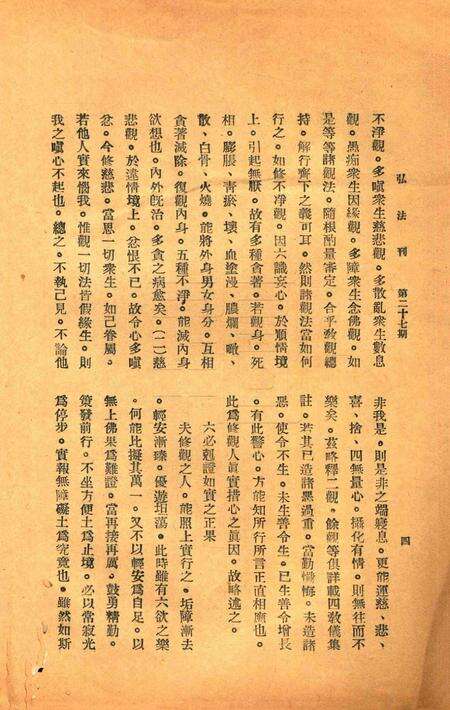 弘法刊　第二十七期
四
不淨觀。多嗔衆生慈悲觀。多散亂衆生數息
觀。愚痴衆生因緣觀。多障衆生念佛觀。如
是等等諸觀法。隨根酌量審定。合乎教觀總
持。解行齊下之義可耳。然則諸觀法當如何
行之。如修不淨觀。因六識妄心。於順情境
上。引起無厭。故有多種貪著。若觀身。死
相。膨脹、青瘀、壞、血塗漫、膿爛、噉、
散、白骨、火燒。能將外身男女身分。互相
貪著滅除。復觀內身。五種不淨。能滅內身
欲想也。內外旣治。多貪之病愈矣。(二)慈
悲觀。於違情境上。忿恨不已。故令心多嗔
忿。今修慈悲。當思一切衆生。如己眷屬。
若他人實來惱我。惟觀一切法皆假緣生。則
我之嗔心不起也。總之。不執己見。不論他
非我是。則是非之端寢息。更能運慈、悲、
喜、捨、四無量心。攝化有情。則無往而不
樂矣。茲略釋二觀。餘觀等俱詳載四教儀集
註。若其已造諸黑過重。當勤懺悔。未造諸
惡。使令不生。未生善令生。已生善令增長
。有此警心。方能知所行所言正直相應也。
此爲修觀人眞實措心之眞因。故略述之。
六必剋證如實之正果
夫修觀之人。能照上實行之。垢障漸去
。輕安漸臻。優遊坦蕩。此時雖有六欲之樂
。何能比擬其萬一。又不以輕安爲自足。以
無上佛果爲難證。當再接再厲。鼓勇精勤。
策發前行。不坐方便土爲止境。必以常寂光
爲停步。實報無障礙土爲究竟也。雖然如斯